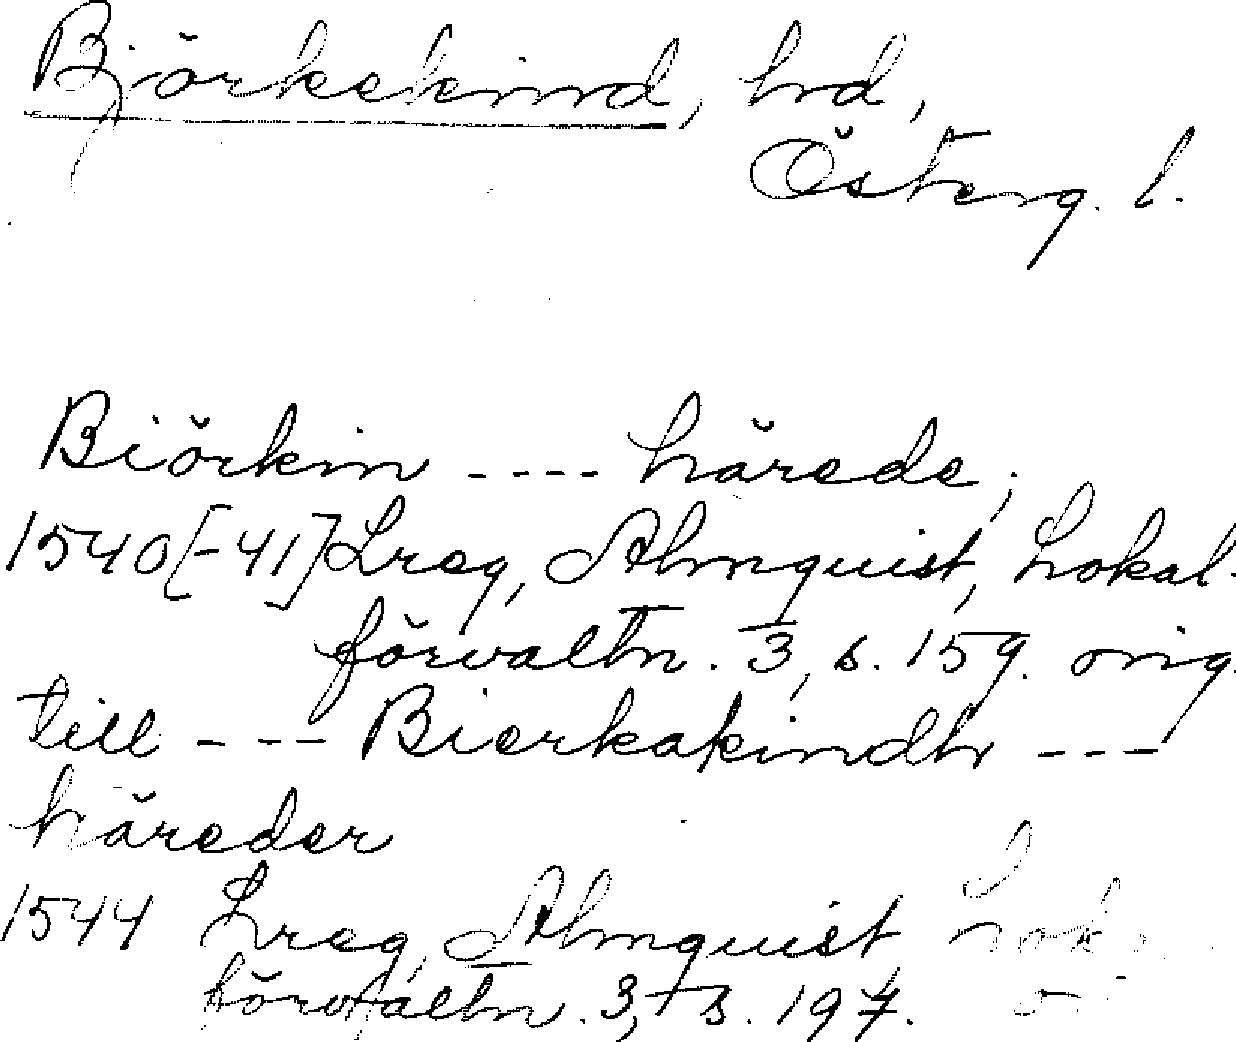 Björkekind, hd,
Österg. l.
Biörkin ---- härede,
1540[-41] Lreg, Almquist, Lokal-
förvaltn. 3, s. 159. orig.
till --- Bierkakindh ---
häreder
1544 Lreg, Almquist, Lok
förvaltn. 3, s. 197.